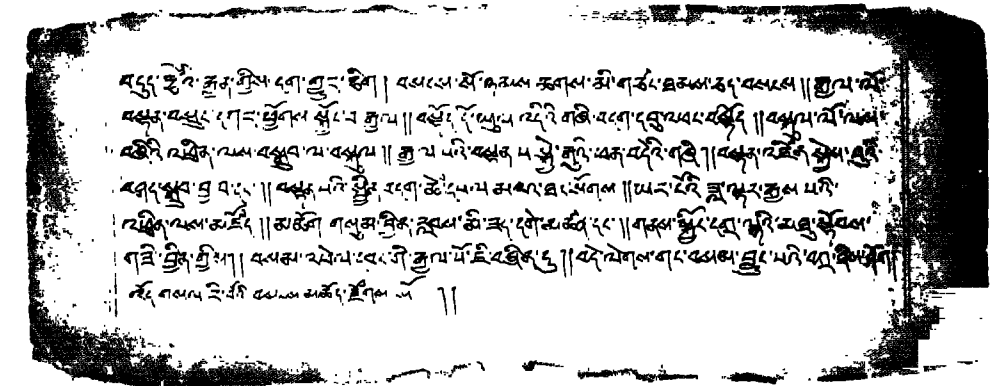 བདུད་རྩིའི་རྒྱུན་གྱིས་དག་གྱུར་ཅིག། བསངས་སོ་ཉམས་ཆགས་མི་གཙང་ཐམས་ཅད་བསངས།། རྒྱལ་པོ་
བསྟན་བསྲུང་དཀར་ཕྱོགས་སྐྱོང་བ་རྒྱལ།། བསྟོད་དོ་ཡུལ་འདིའི་གཞི་བདག་དབུ་འཕང་བསྟོད།། བསྐུལ་ལོ་ལས་
བཞིའི་འཕྲིན་ལས་བསྒྲུབ་ལ་བསྐུལ།། རྒྱལ་བའི་བསྟན་པ་སྤྱི་རུའི་བན་བདེའི་གཞི།། བསྟན་འཛིན་སྐྱེས་བུའི་
བཤད་སྒྲུབ་བྱ་བ་དང་།། བསྟན་པའི་སྦྱིན་བདག་ཚེ་དཔལ་མངའ་ཐང་སོགས།། ཡར་ངོའི་ཟླ་ལྟར་རྒྱས་པའི་
འཕྲིན་ལས་མཛོད།། མ་ཚོག གསུམ་བྱིན་རླབས་མི་ཟད་དགེ་མཚན་དང་།། གནས་སྐྱོང་དགྲ་ལྷའི་མཐུ་སྟོབས་
གཟི་བྱིན་གྱིས།། བསམ་འཕེལ་དབང་གི་རྒྱལ་པོ་ཇི་བཞིན་དུ།། བདེ་ལེགས་གང་བསམ་བྱུང་བའི་བཀྲ་ཤིས་ཤོག།
འོད་གསལ་རི་བོའི་བསངས་མཆོད་རྫོགས་སོ །།